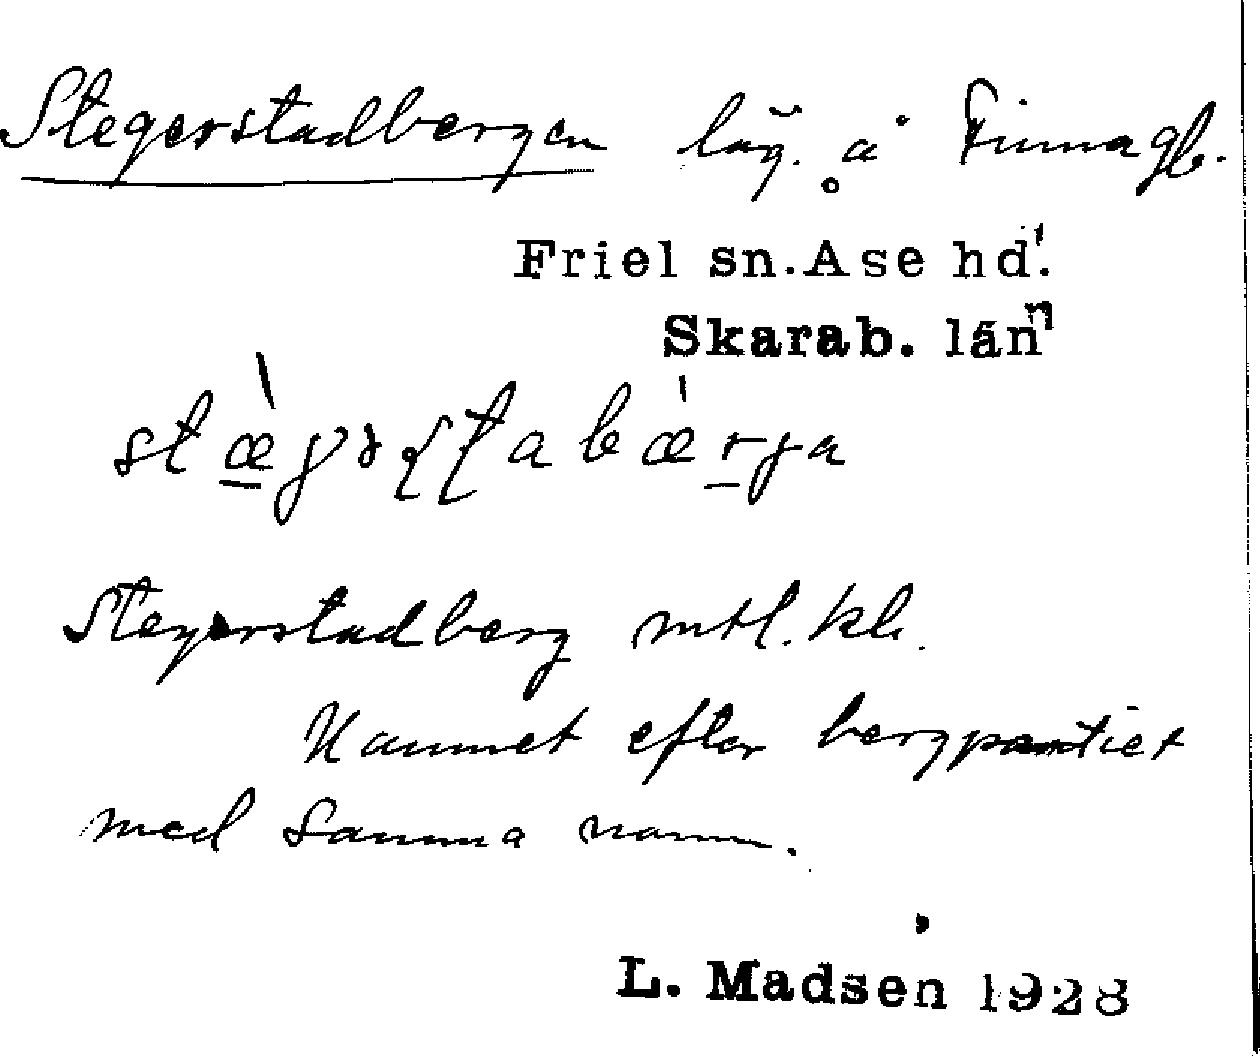 Stegerstadbergen läg. å Finnagb.
Friel sn. Åse hd.
Skarab. län
Stegerstadberg mtl. kb.
Namnet efter bergpartiet
med samma namn.
L. Madsen 1928